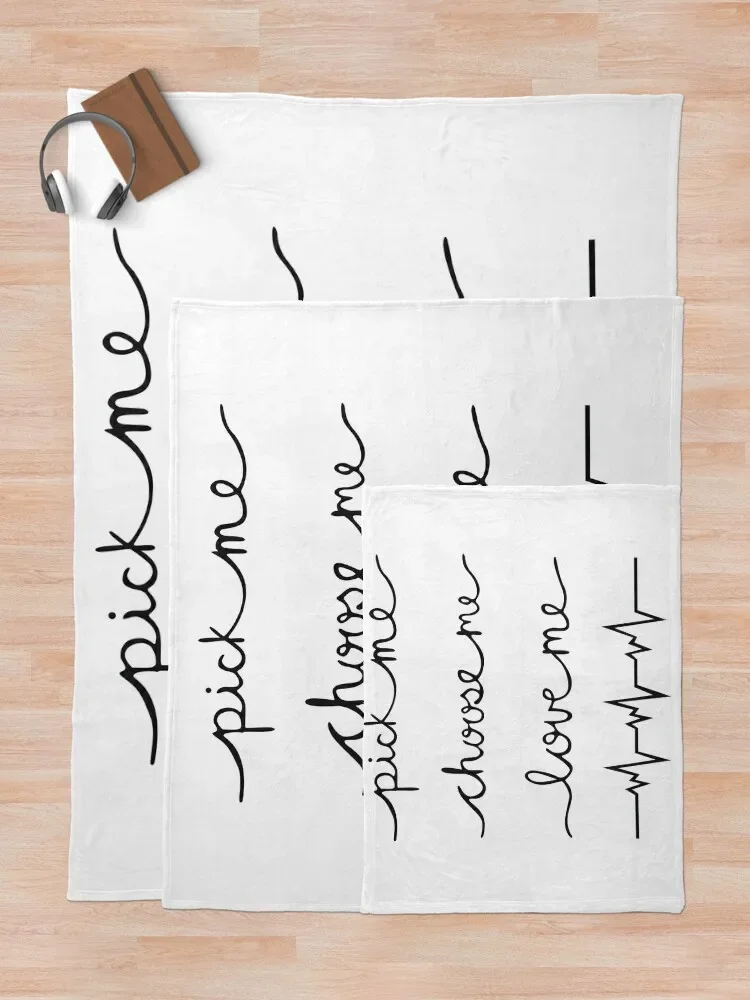 pick me
pick me
choose me
pick me
choose me
love me